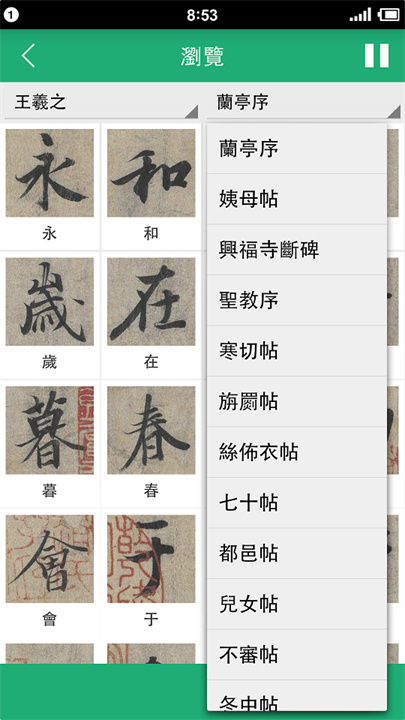 1
8:53
瀏覽
王羲之
蘭亭序
永 和
永 和
歲 在
歲 在
暮 春
暮 春
會 于
會 于
蘭亭序
姨母帖
興福寺斷碑
聖教序
寒切帖
旃罽帖
絲佈衣帖
七十帖
都邑帖
兒女帖
不審帖
冬中帖